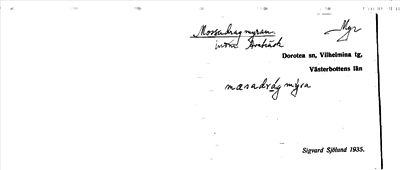 Mossadragmyran Myr
invid
Dorotea sn, Vilhelmina tg,
Västerbottens län
masadrágmỳra
Sigvard Sjölund 1935.